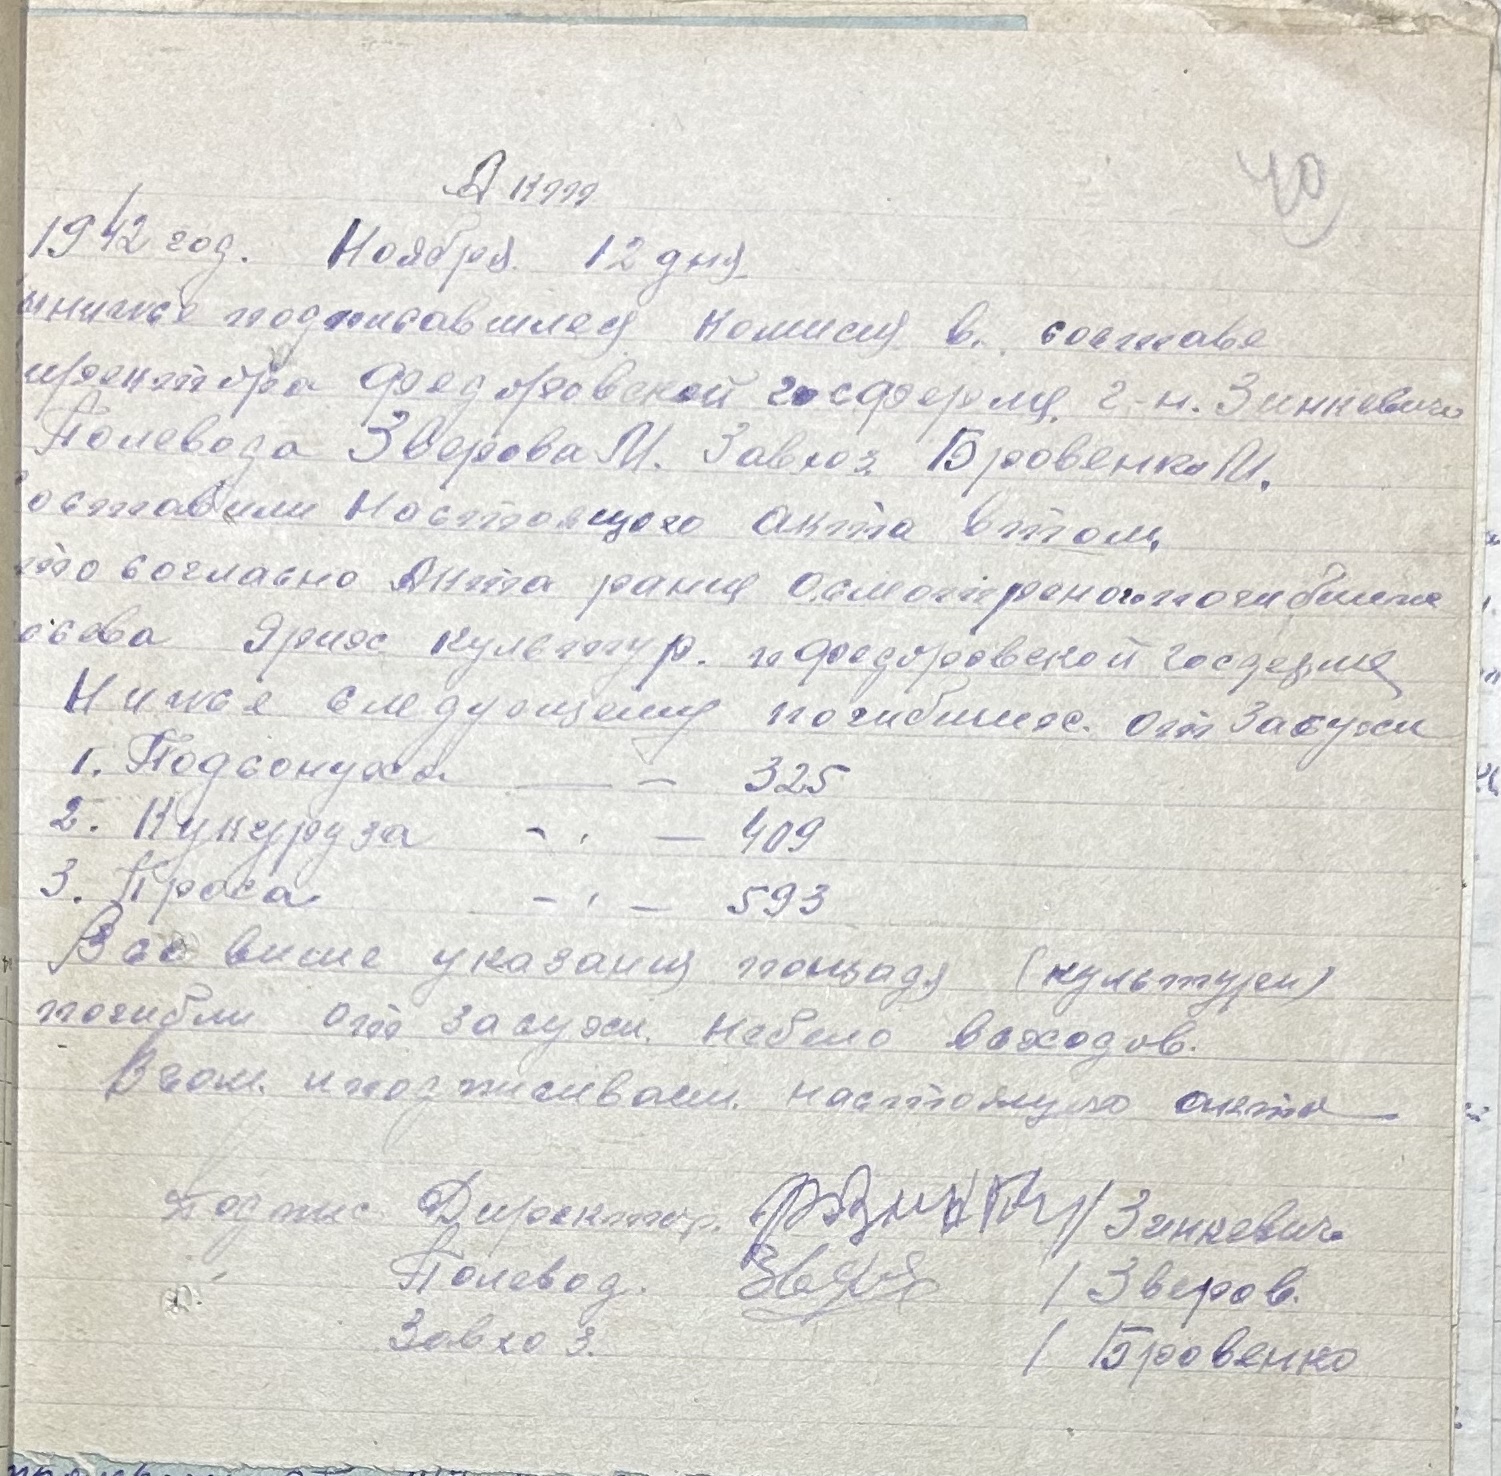 40
Акт
1942 год. Ноября 12 дня
ыниже подписавшлея комисия в. составе
иректора Федоровской госфермы г-н. Зинкевич
Полевода Зверова М. Завхоз Бровенко И.
оставили Настоящого акта втом,
то согласно Акта ранне осмотрено погибшие
осева Яриж культур. п Федоровской госферме
Ниже следующеми погибших. от Засухи
1. Подсонуха — - 325
2. Кукуруза - ' — 409
3. Проса - ' — 593
Все више указания площадя (культури)
погибли от засухи. небило всходов.
Вчом. иподписиваем. настоящого акта
Подпис Директор. / Зинкевич
Полевод. / Зверов.
Завхоз. / Бровенко